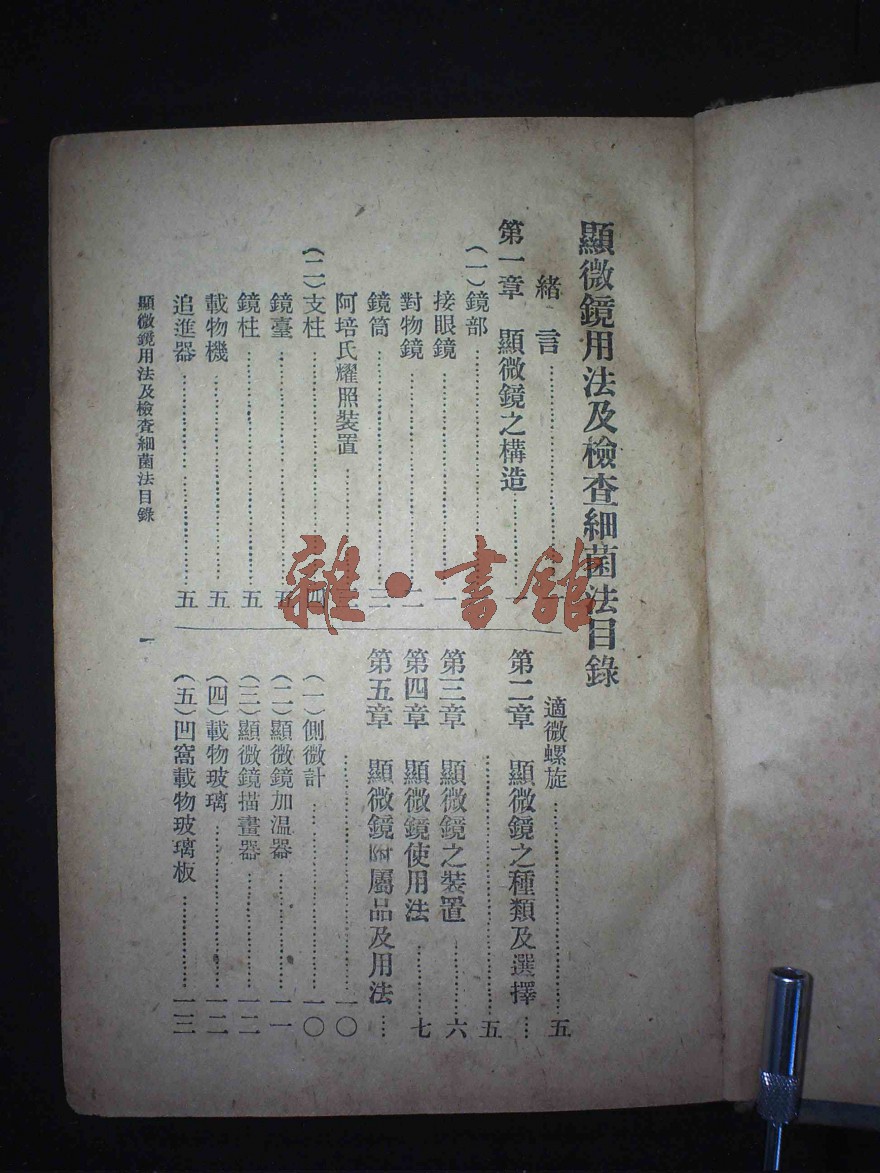 顯微鏡用法及檢查細菌法目錄
緒言……
第一章　顯微鏡之構造……
(一)鏡部……
接眼鏡……一
對物鏡……二
鏡筒……三
阿培氏耀照裝置……三
(二)支柱……四
鏡臺……五
鏡柱……五
載物機……五
追進器……五
適微螺旋……五
第二章　顯微鏡之種類及選擇……
……五
第三章　顯微鏡之裝置……六
第四章　顯微鏡使用法……七
第五章　顯微鏡附屬品及用法……
……一〇
(一)側微計……一〇
(二)顯微鏡加溫器……一一
(三)顯微鏡描畫器……一二
(四)載物玻璃……一二
(五)凹窩載物玻璃板……一三
顯微鏡用法及檢查細菌法目錄
一
雜·書館